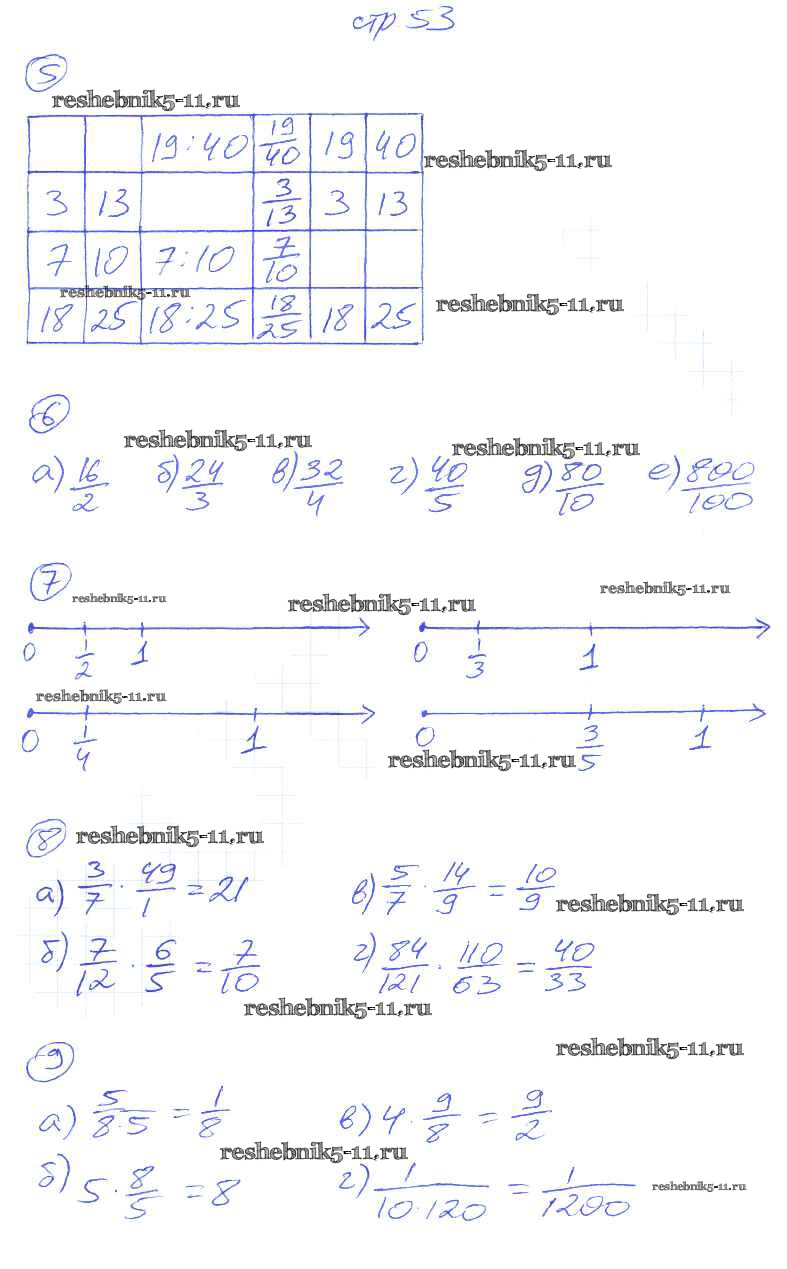 стр 53
5
reshebnik5-11.ru
19:40 19/40 19 40
reshebnik5-11.ru
3 13 3/13 3 13
7 10 7:10 7/10
reshebnik5-11.ru
18 25 18:25 18/25 18 25
reshebnik5-11.ru
6
reshebnik5-11.ru
reshebnik5-11.ru
а) 16/2 б) 24/3 в) 32/4 г) 40/5 д) 80/10 е) 800/100
7
reshebnik5-11.ru
reshebnik5-11.ru
reshebnik5-11.ru
0 1/2 1 0 1/3 1
reshebnik5-11.ru
0 1/4 1 0 3/5 1
reshebnik5-11.ru
8
reshebnik5-11.ru
а) 3/7 · 49/1 = 21 в) 5/7 · 14/9 = 10/9
reshebnik5-11.ru
б) 7/12 · 6/5 = 7/10 г) 84/121 · 110/63 = 40/33
reshebnik5-11.ru
reshebnik5-11.ru
9
а) 5/8·5 = 1/8 в) 4 · 9/8 = 9/2
reshebnik5-11.ru
б) 5 · 8/5 = 8 г) 1/10·120 = 1/1200
reshebnik5-11.ru